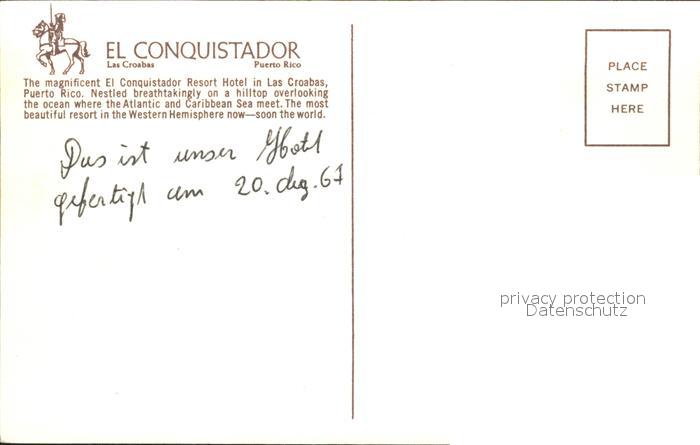 EL CONQUISTADOR
Las Croabas Puerto Rico
The magnificent El Conquistador Resort Hotel in Las Croabas,
Puerto Rico. Nestled breathtakingly on a hilltop overlooking
the ocean where the Atlantic and Caribbean Sea meet. The most
beautiful resort in the Western Hemisphere now—soon the world.
Das ist unser Hotel
gefertigt am 20. dez. 67
PLACE
STAMP
HERE
privacy protection
Datenschutz